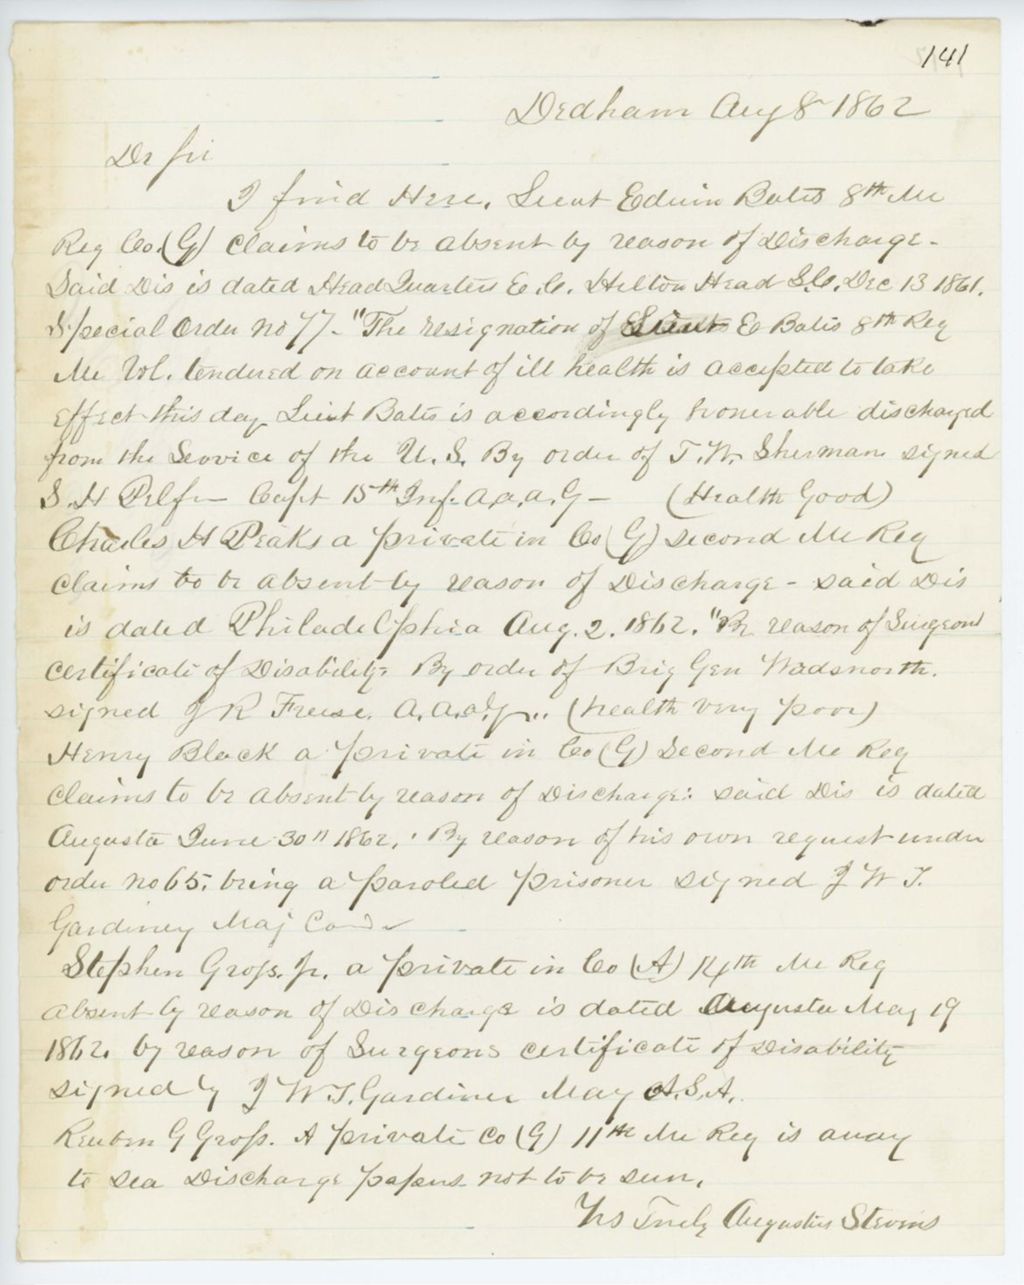 141
Dedham Aug 8 1862
Dr Sir
I find Here. Lieut Edwin Bates 8th Me
Reg Co. (G) claims to be absent by reason of Discharge -
Said Dis is dated Head Quarters E. C. Hilton Head S.C. Dec 13 1861.
Special Order No 77 - "The resignation of Lieut E Bates 8th Reg
Me Vol. tendered on account of ill health is accepted to take
effect this day Lieut Bates is accordingly honerable discharged
from the Service of the U. S. By order of T. W. Sherman signed
S. H Capt 15th Inf. a. a. a. G - (Health Good)
Charles H Peaks a private in Co (G) second Me Reg
claims to be absent by reason of Discharge - said Dis
is dated Philadelphia Aug. 2. 1862. "By reason of Surgeons
certificate of Disability By order of Brig Gen Wadsworth.
signed J R Freese. A. A. A. G. (health very poor)
Henry Black a private in Co (G) Second Me Reg
claims to be absent by reason of Discharge: said Dis is dated
Augusta June 30" 1862. By reason of his own request under
order no 65. being a paroled prisoner signed J W T.
Gardiney Maj
Stephen Gross. Jr. a private in Co (A) 14th Me Reg
absent by reason of Discharge is dated Augusta May 19
1862. by reason of Surgeons certificate of Disability
signed by J W T. Gardiner May A.S.A.
Reuben G Gross. A private Co (G) 11th Me Reg is away
to sea Discharge papers not to be seen.
Yrs Truly Augustus Stevens